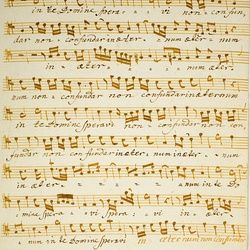 in te Domine spera - vi non confun
dar non confundar in æter - num æter - num
in æter - num æter
num non confundar non confundar in æternum
in te Domine speravi non con
fundar non confundar in æternum in æter num
in æter - num in te Do
mine spera - vi spera - vi in æter
num in te Domine speravi in æter num non confund